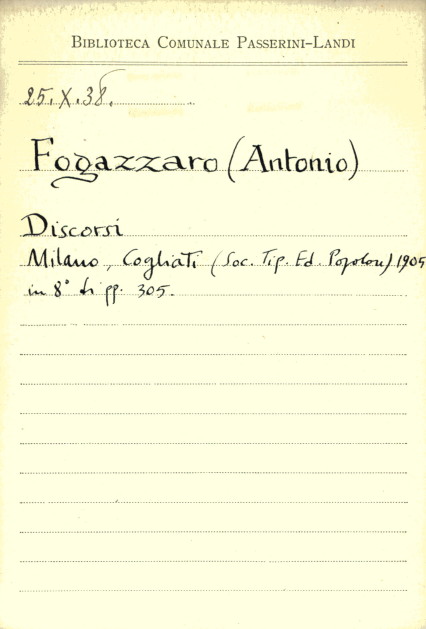 BIBLIOTECA COMUNALE PASSERINI-LANDI
25.X.38.
Fogazzaro (Antonio)
Discorsi
Milano, Cogliati (Soc. Tip. Ed. Popolare) 1905
in 8° di pp. 305.